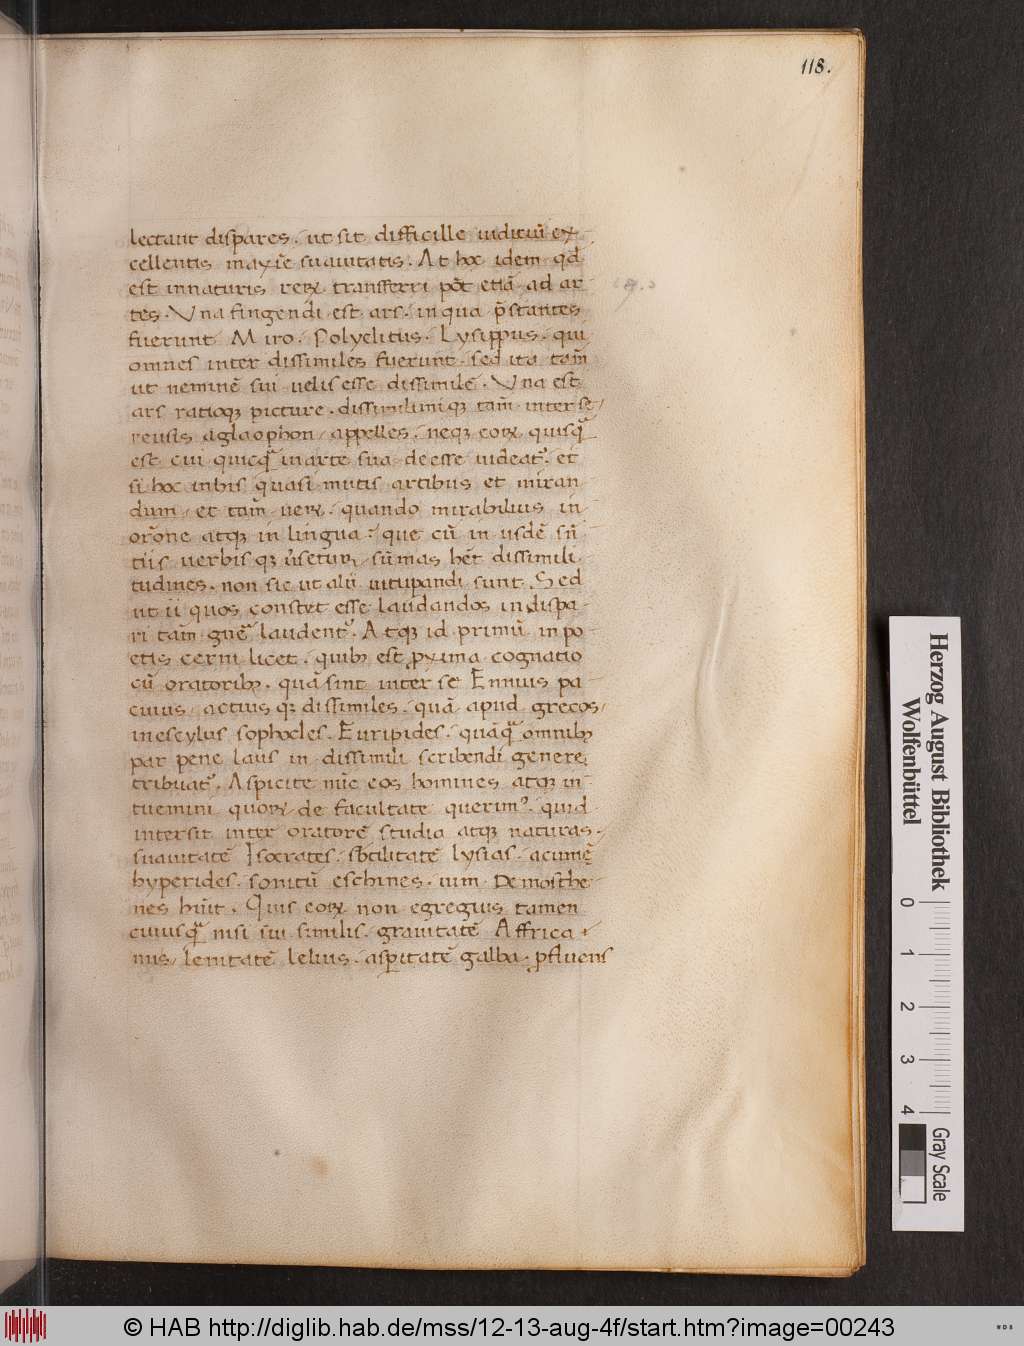 118.
lectant dispares. ut sit difficille iuditiuȝ ex-
cellentis maxīe suauitatis. At hoc idem qd̄
est in naturis reꝝ transfferri pōt etiā ad ar
tes. Vna fingendi est ars. in qua p̄stantes
fuerunt Miro. Polyclitus. Lysippus. qui
omnes inter dissimiles fuerunt. sed ita tam̄
ut neminē sui uelis esse dissimilē. Vna est
ars ratioqꝫ picture. dissimilimiqꝫ tam̄ inter se/
reusis aglaophon/ appelles. neqꝫ eoꝝ quisqᷓ
est cui quicqᷓ in arte sua deesse uideat᷑. et
si hoc in his quasi mutis artibus et miran-
dum/ et tam̄ ueꝝ. quando mirabilius in
or̄one atqꝫ in lingua? que cū in iisdē sn̄-
tiis uerbisqꝫ u̓setur/ sūmas hēt dissimili
tudines. non sic ut alii uitupandi sunt. Sed
ut ii quos constet esse laudandos in dispa-
ri tam̄ guē laudent᷑. Atqꝫ id primū in po-
etis cerni licet. quibꝫ est ꝓxima cognatio
cū oratoribꝫ. quā sint inter se Ennius pa-
cuuius/ actiusqꝫ dissimiles. quā apud grecos/
inescylus sophocles. Euripides. quāqᷓ omnibꝫ
par pene laus in dissimili scribendi genere
tribuat᷑. Aspicite nūc eos homines atqꝫ in-
tuemini quoꝝ de facultate querimꝰ. quid
intersit inter oratorē studia atqꝫ naturas.
suauitatē Isocrates. sb̄tilitatē lysias. acumē
hyperides. sonitū eschines. uim Demosthe-
nes hūit. Quis eoꝝ non egregius tamen
cuiusqᷓ nisi sui similis. grauitatē Affrica-
nus/ lenitatē lelius. asꝑitatē galba. ꝓfluens
Herzog August Bibliothek
Wolfenbüttel
0 1 2 3 4
Gray Scale
© HAB http://diglib.hab.de/mss/12-13-aug-4f/start.htm?image=00243